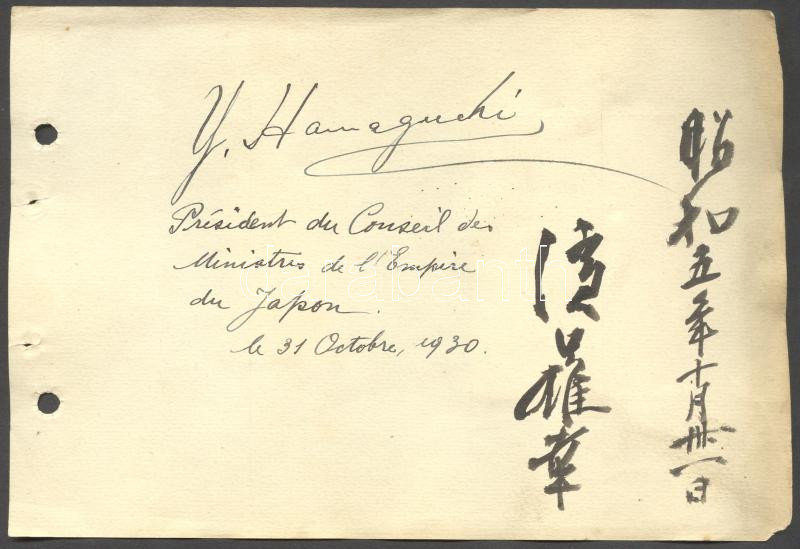 Y. Hamaguchi
Président du Conseil des
Ministres de l'Empire
du Japon.
le 31 Octobre, 1930.
昭和五年十月卅一日
濱口雄幸